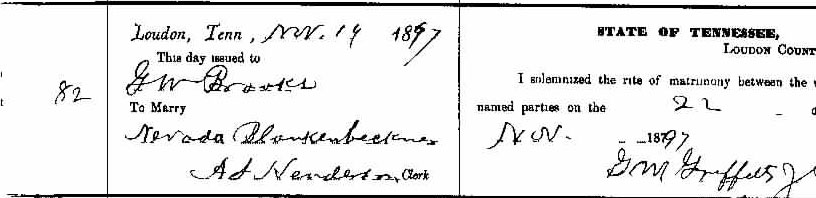 Loudon, Tenn, Nov. 19 1897
This day issued to
G W Brooks
82
To Marry
Nevada Blankenbeckner
A S Henderson, Clerk
STATE OF TENNESSEE,
LOUDON COUNT
I solemnized the rite of matrimony between the
named parties on the 22
Nov. 1897
G M Griffitts J